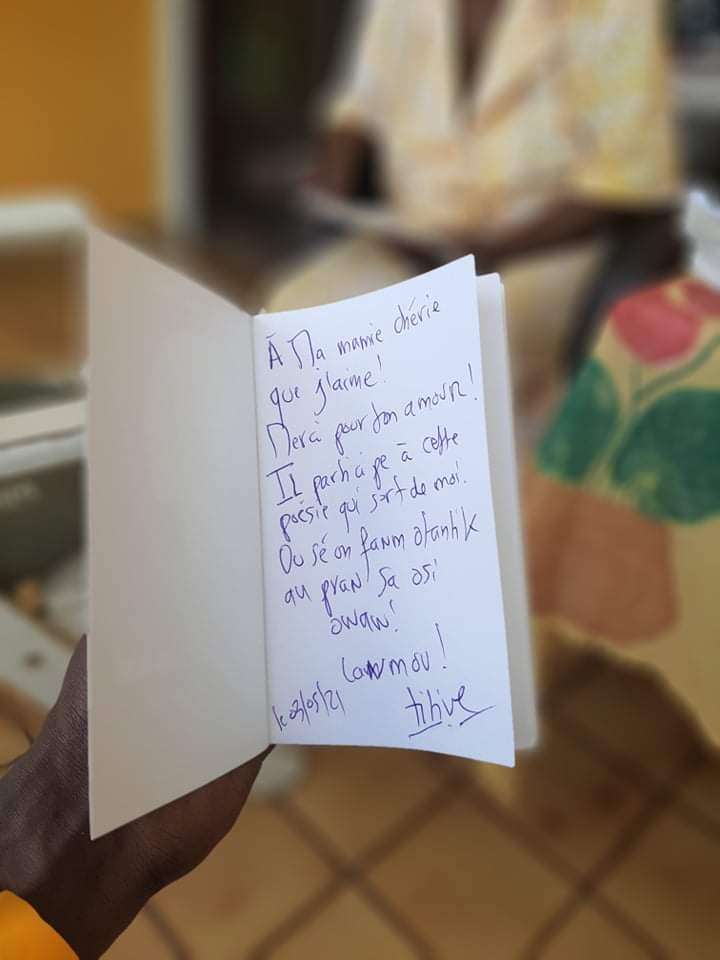 À Ma mamie chérie
que j'aime!
Merci pour ton amour!
Il participe à cette
poésie qui sort de moi.
Ou sé on fanm otantik
an pran sa osi
owaw!
Lanmou!
le 03/05/21
titive